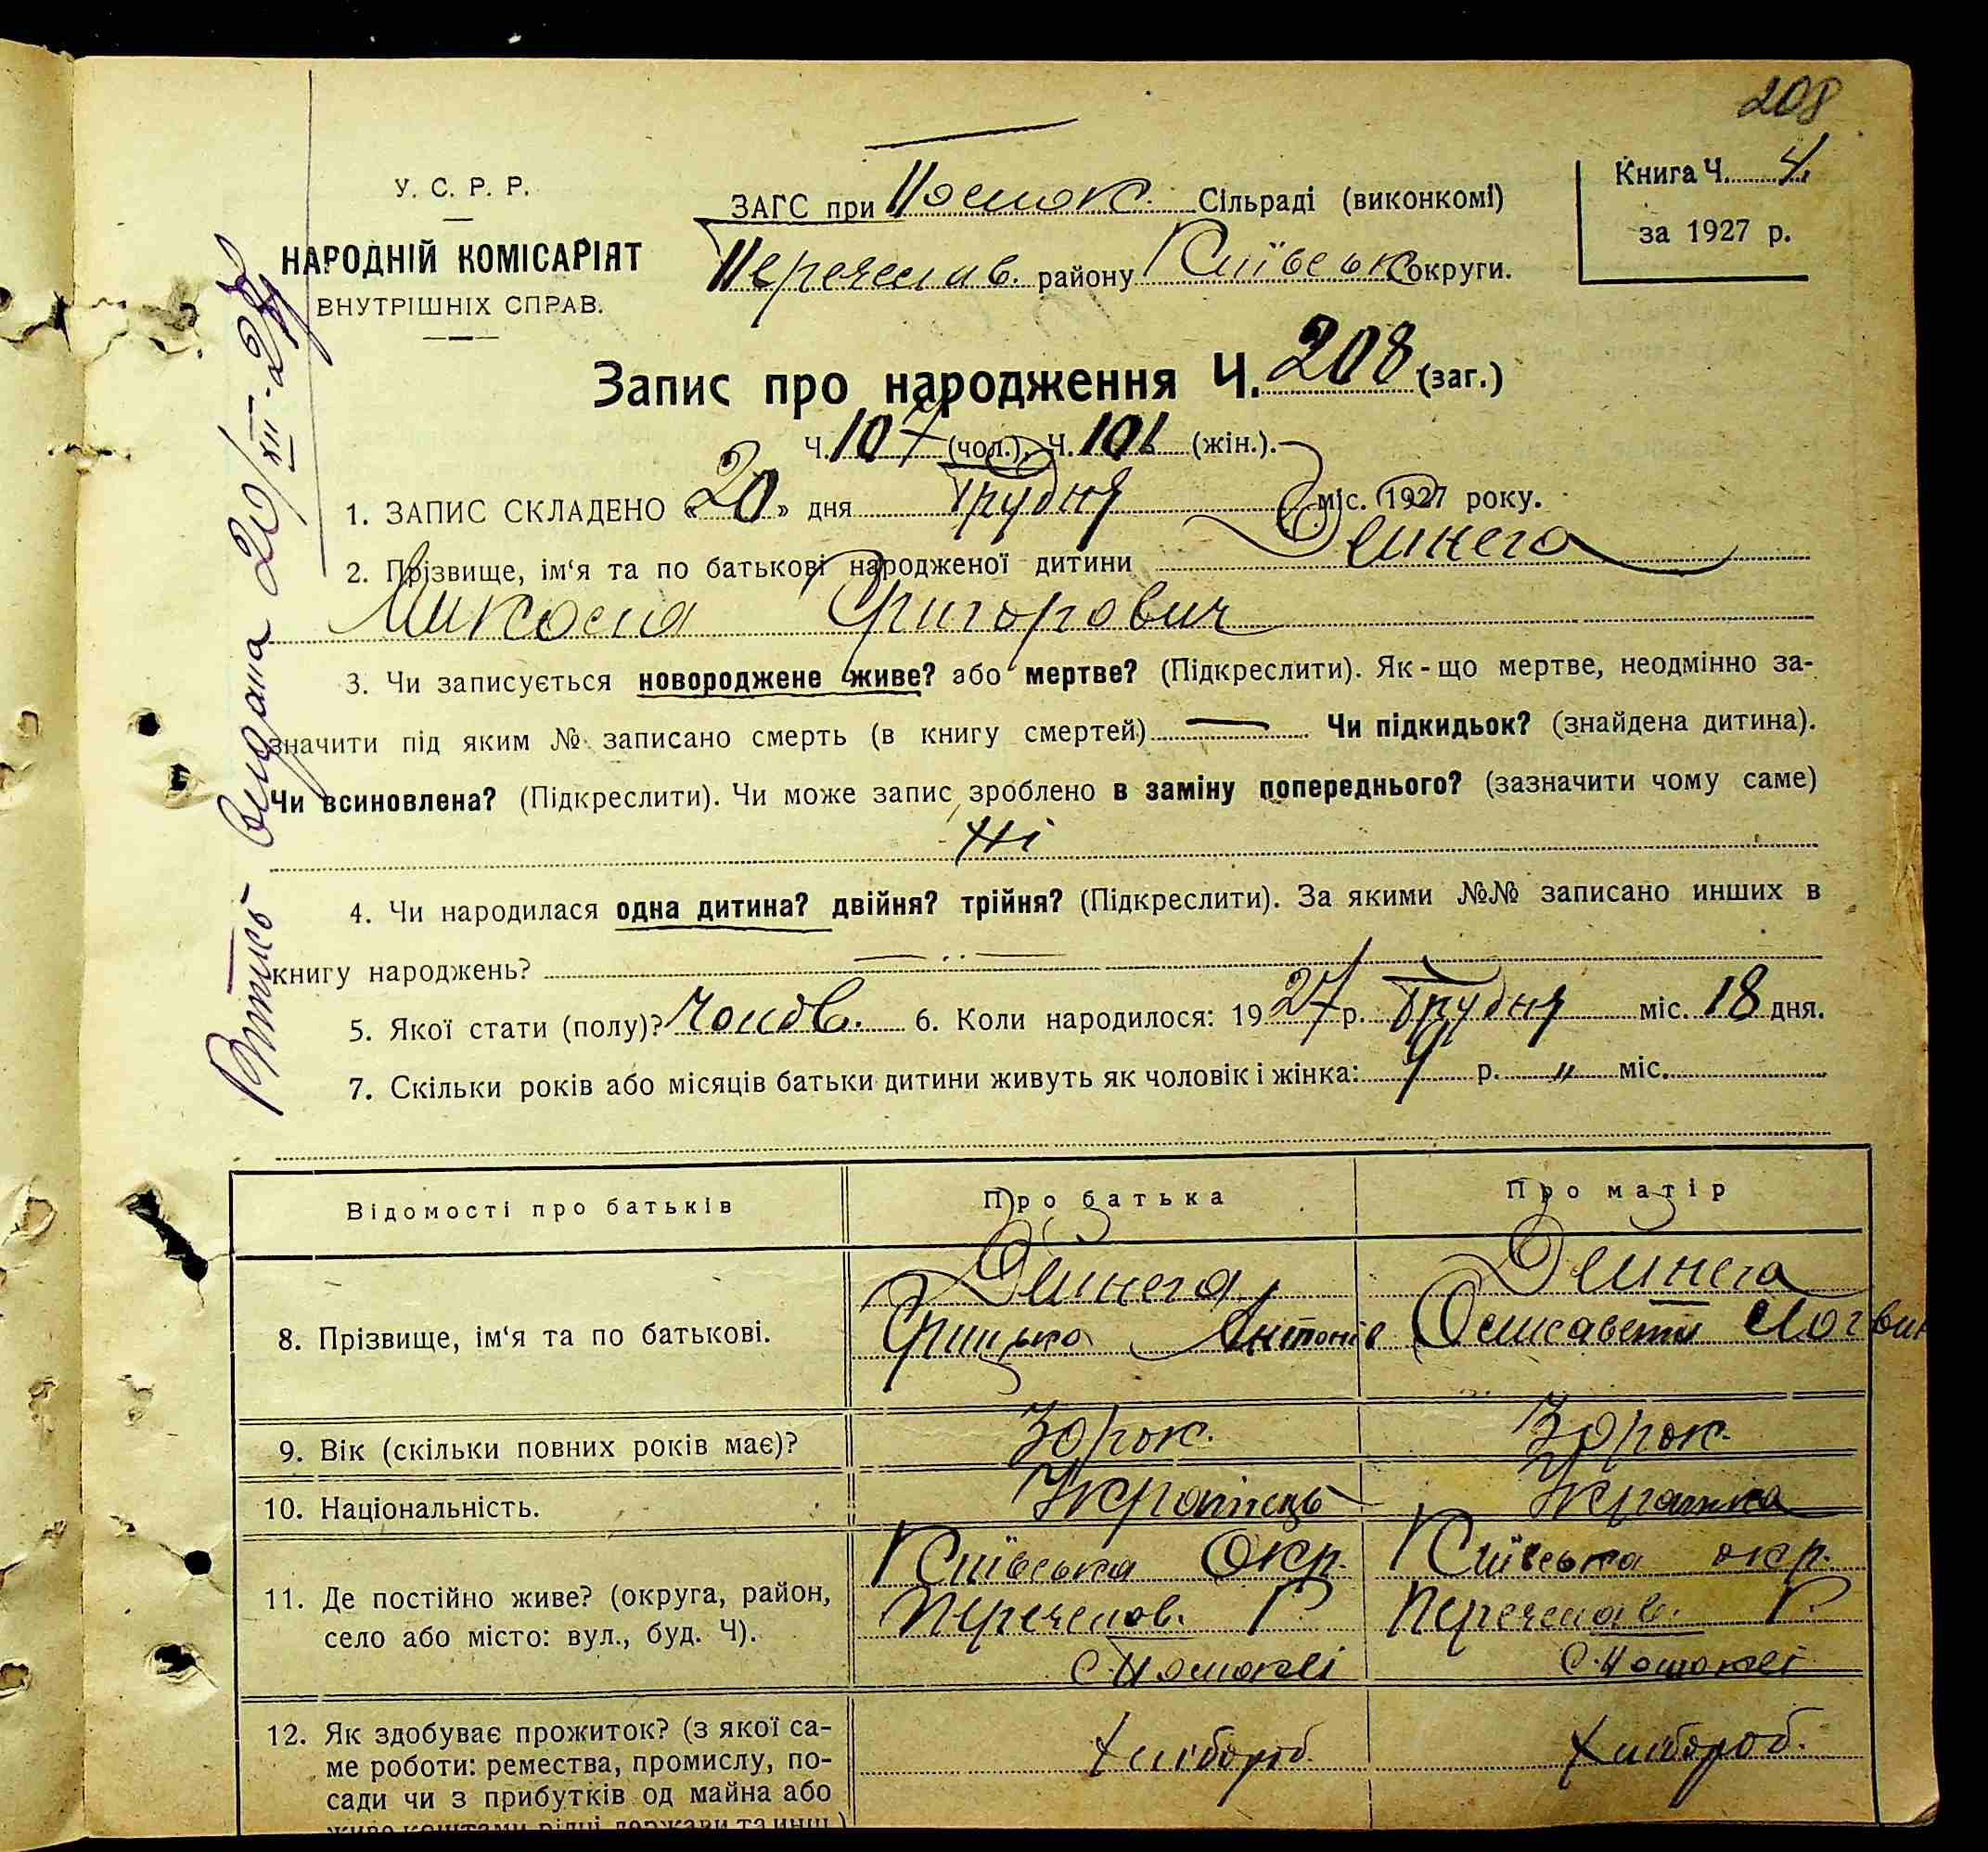 208
У. С. Р. Р.
НАРОДНІЙ КОМІСАРІЯТ
ВНУТРІШНІХ СПРАВ.
ЗАГС при Помок. Сільраді (виконкомі)
Переяслав. району Київськ округи.
Книга Ч. 4
за 1927 р.
Запис про народження Ч. 208 (заг.)
Ч. 107 (чол.), Ч. 101 (жін.).
1. ЗАПИС СКЛАДЕНО «20» дня Грудня міс. 1927 року.
2. Прізвище, ім'я та по батькові народженої дитини Дейнега
Микола Григорович
3. Чи записується новороджене живе? або мертве? (Підкреслити). Як-що мертве, неодмінно за-
значити під яким № записано смерть (в книгу смертей) — Чи підкидьок? (знайдена дитина).
Чи всиновлена? (Підкреслити). Чи може запис зроблено в заміну попереднього? (зазначити чому саме)
Ні
4. Чи народилася одна дитина? двійня? трійня? (Підкреслити). За якими №№ записано инших в
книгу народжень?
5. Якої стати (полу)? Чолов. 6. Коли народилося: 1927 р. Грудня міс. 18 дня.
7. Скільки років або місяців батьки дитини живуть як чоловік і жінка: 9 р. „ міс.
Випись видана 20/XII-27
Відомості про батьків
Про батька
Про матір
8. Прізвище, ім'я та по батькові.
Дейнега
Грицько Антонів
Дейнега
Єлисавета Логвин
9. Вік (скільки повних років має)?
30 рок.
30 рок.
10. Національність.
Українець
Українка
11. Де постійно живе? (округа, район,
село або місто: вул., буд. Ч).
Київська Окр.
Переяслав. Р.
Київська окр.
Переяслав. Р.
12. Як здобуває прожиток? (з якої са-
ме роботи: ремества, промислу, по-
сади чи з прибутків од майна або
живе коштами рідні, держави та инш.)
Хлібороб.
Хлібороб.